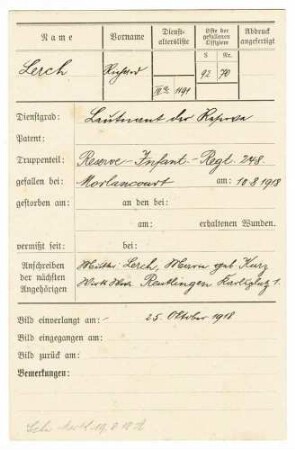 Name Vorname Dienst-altersliste Liste der gefallenen Offiziere Abdruck angefertigt
S. Nr.
Lerch Richard 1191 92 70
Dienstgrad: Leutnant der Reserve
Patent:
Truppenteil: Reserve-Infant.-Regt. 248.
gefallen bei: Morlancourt am: 10.8.1918
gestorben am: an den bei:
am: erhaltenen Wunden.
vermißt seit: bei:
Anschreiben der nächsten Angehörigen
Lerch, geb. Kurz
Reutlingen 1.
Bild einverlangt am: 25. Oktober 1918
Bild eingegangen am:
Bild zurück am:
Bemerkungen: